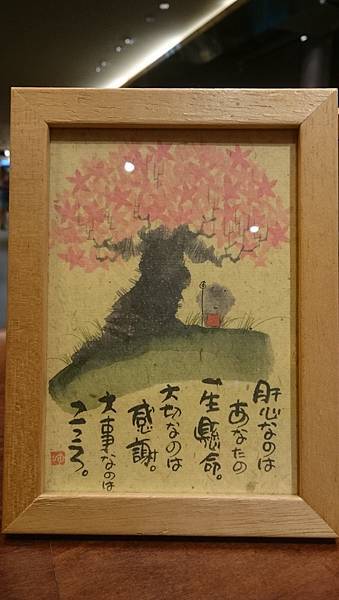 肝心なのは
あなたの
一生懸命。
大切なのは
感謝。
大事なのは
こころ。